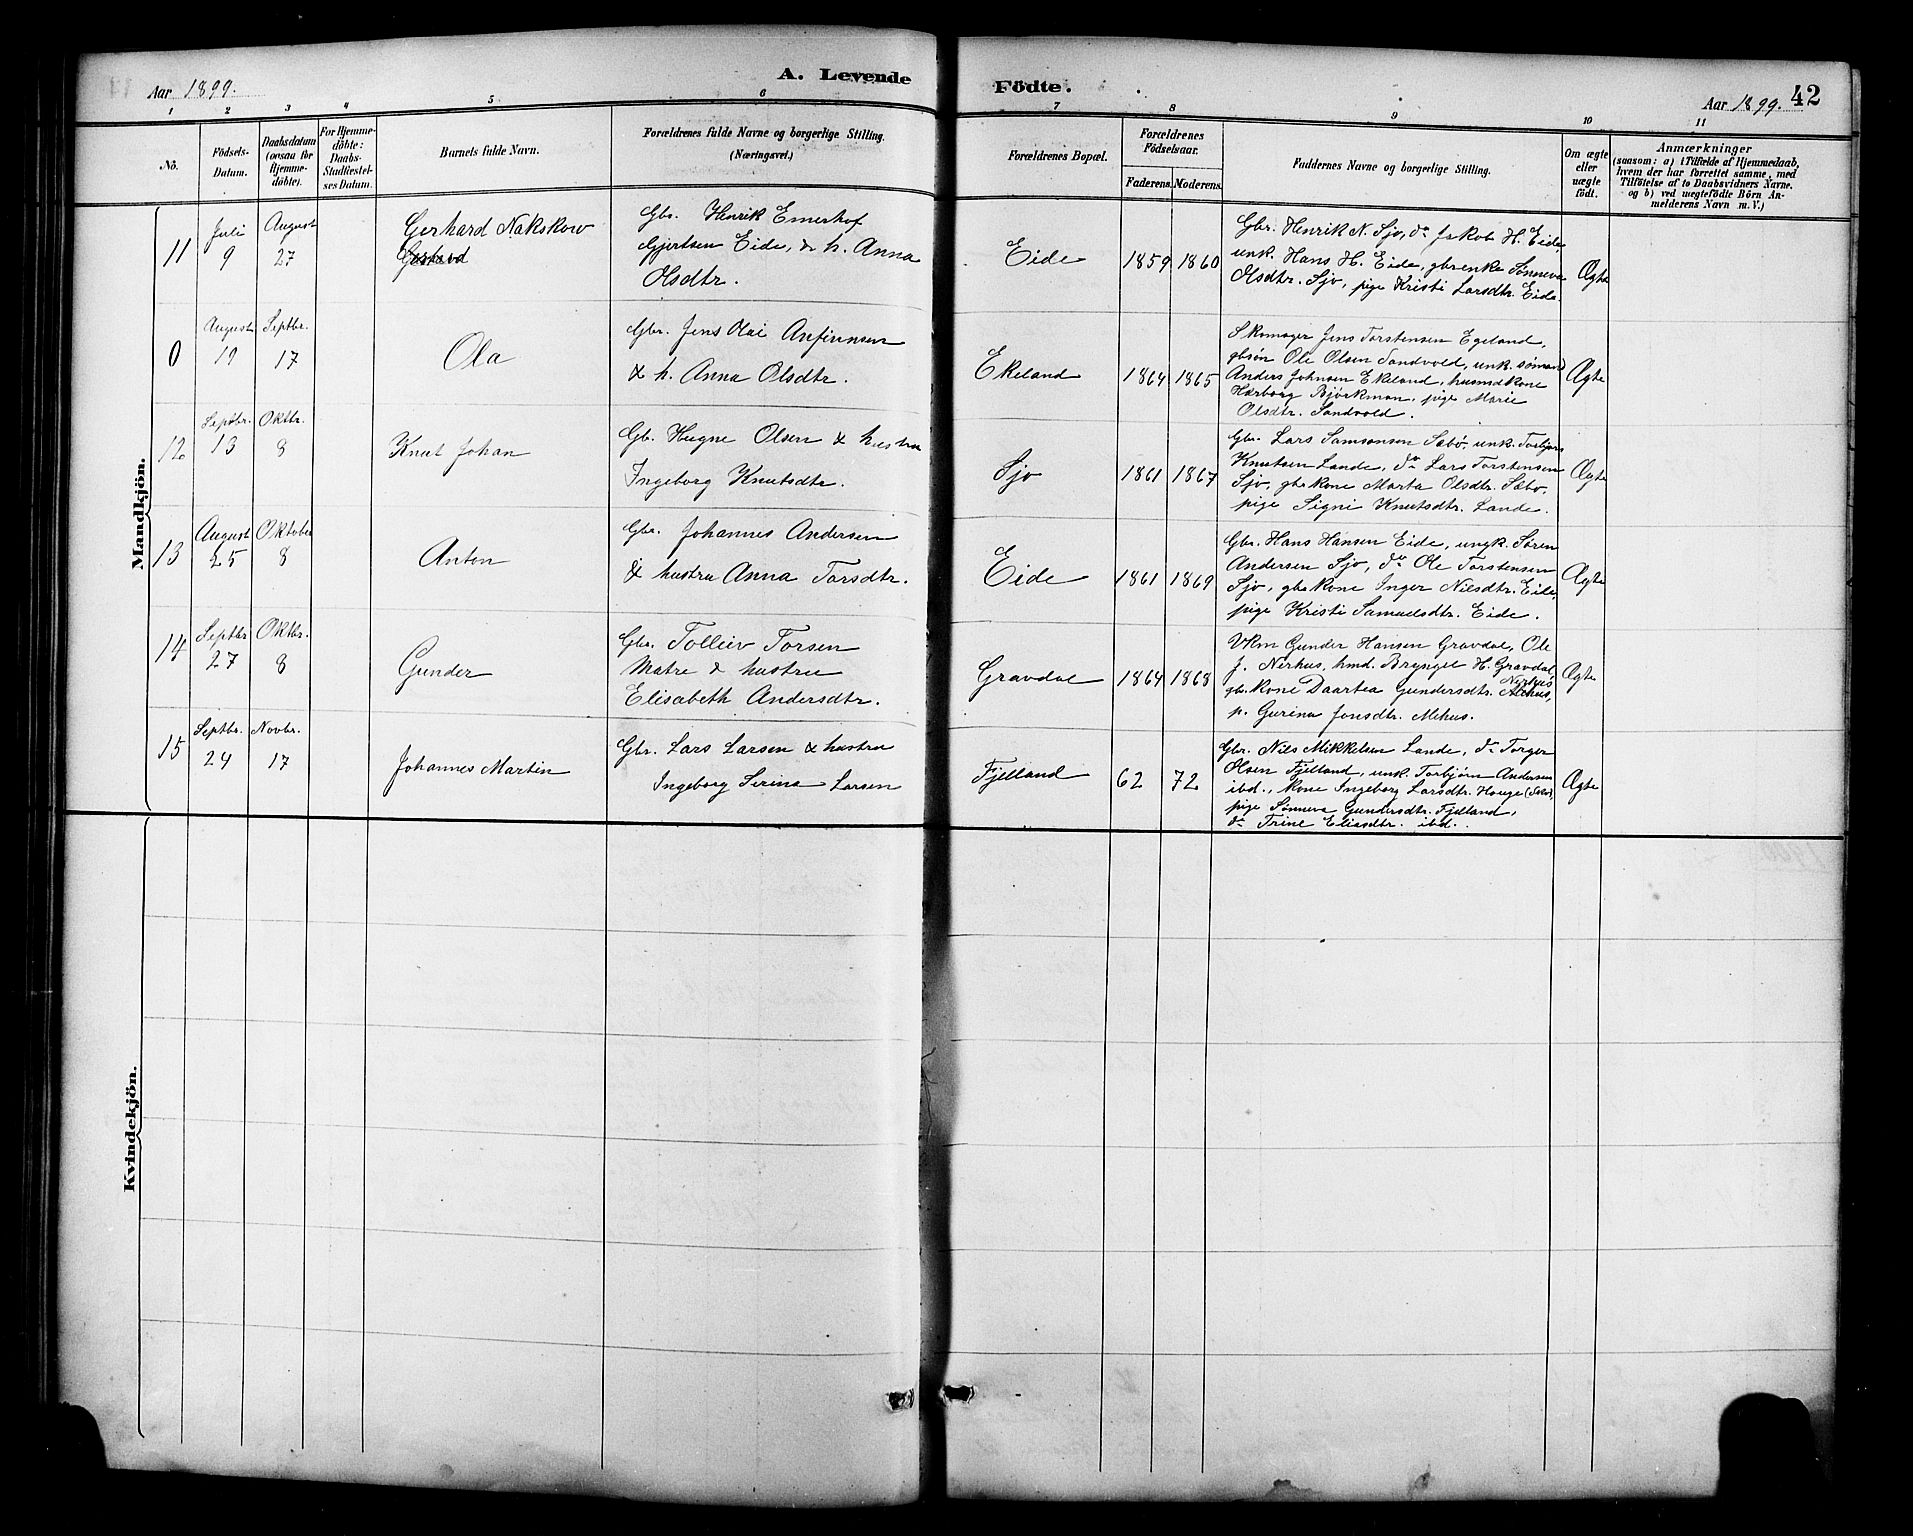 Aar 1899.
A. Levende
Födte.
Aar 1899.
42
1 2 3 4 5 6
7 8 9 10 11
Nö.
Födsels-
Datum.
Daabsdatum
(ogsaa for
Hjemme-
döbte).
For Hjemme-
döbte:
Daabs-
Stadfæstel-
ses Datum.
Barnets fulde Navn.
Forældrenes fulde Navne og borgerlige Stilling.
(Næringsvei.)
Forældrenes Bopæl.
Forældrenes
Födselsaar.
Faderens. Moderens.
Faddernes Navne og borgerlige Stilling.
Om ægte
eller
uægte
födt.
Anmærkninger
(saasom: a) i Tilfælde af Hjemmedaab,
hvem der har forrettet samme, med
Tilföielse af to Daabsvidners Navne.
og b) ved uegtefödte Börn An-
melderens Navn m. V.)
Mandkjön.
11
Juli
9
August
27
Gerhard Nakskow
Gbr. Henrik Emerhof
Gjertsen Eide, & h. Anna
Olsdtr.
Eide
1859 1860
Gbr. Henrik N. Sjo, do Jakob H. Eide,
unk. Hans H. Eide, gbrenke Sønneva
Olsdtr. Sjo, pige Kristi Larsdtr. Eide
Ægte
0
August
19
Septbr.
17
Ola
Gbr. Jens Olai Anfinnsen
& h. Anna Olsdtr.
Ekeland
1864 1865
Skomager Jens Torstensen Egeland,
gbsøn Ole Olsen Sandvold, unk. sømand
Anders Johnsen Ekeland, husmdkone
Herborg Bjørkman, pige Marie
Olsdtr. Sandvold.
Ægte
12
Septbr.
13
Oktbr.
8
Knut Johan
Gb. Hugne Olsen & hustru
Ingeborg Knutsdtr.
Sjo
1861 1867
Gbr. Lars Samsonsen Sæbø, unk. Torbjørn
Knutsen Lande, do Lars Torstensen
Sjo, gbr kone Marta Olsdtr. Sæbo,
pige Signi Knutsdtr. Lande.
Ægte
13
August
25
Oktober
8
Anton
Gbr. Johannes Andersen
& hustru Anna Torsdtr.
Eide
1861 1869
Gbr. Hans Hansen Eide, ungk. Søren
Andersen Sjo, do Ole Torstensen
Sjo, gbs kone Inger Nilsdtr. Eide,
pige Kristi Samuelsdtr. Eide.
Ægte
14
Septbr
27
Oktbr.
8
Gunder
Gbr. Tolleiv Torsen
Matre & hustru
Elisabeth Andersdtr.
Gravdal
1864 1868
Vkm Gunder Hansen Gravdal, Ole
J. Nerhus, hmd. Bryngel H. Gravdal,
gb. kone Daartea Gundersdtr. Nerhus,
p. Gurina Jonsdtr. Mehus.
Ægte
15
Septbr.
24
Novbr.
17
Johannes Martin
Gbr. Lars Larsen & hustru
Ingeborg Serina Larsen
Fjelland
62 72
Gbr. Nils Mikkelsen Lande, do Torger
Olsen Fjelland, unk. Torbjørn Andersen
ibd., kone Ingeborg Larsdtr. Houge
pige Sønneva Gundersdtr. Fjelland,
do Trine Eliasdtr. ibd.
Ægte
Kvindekjön.